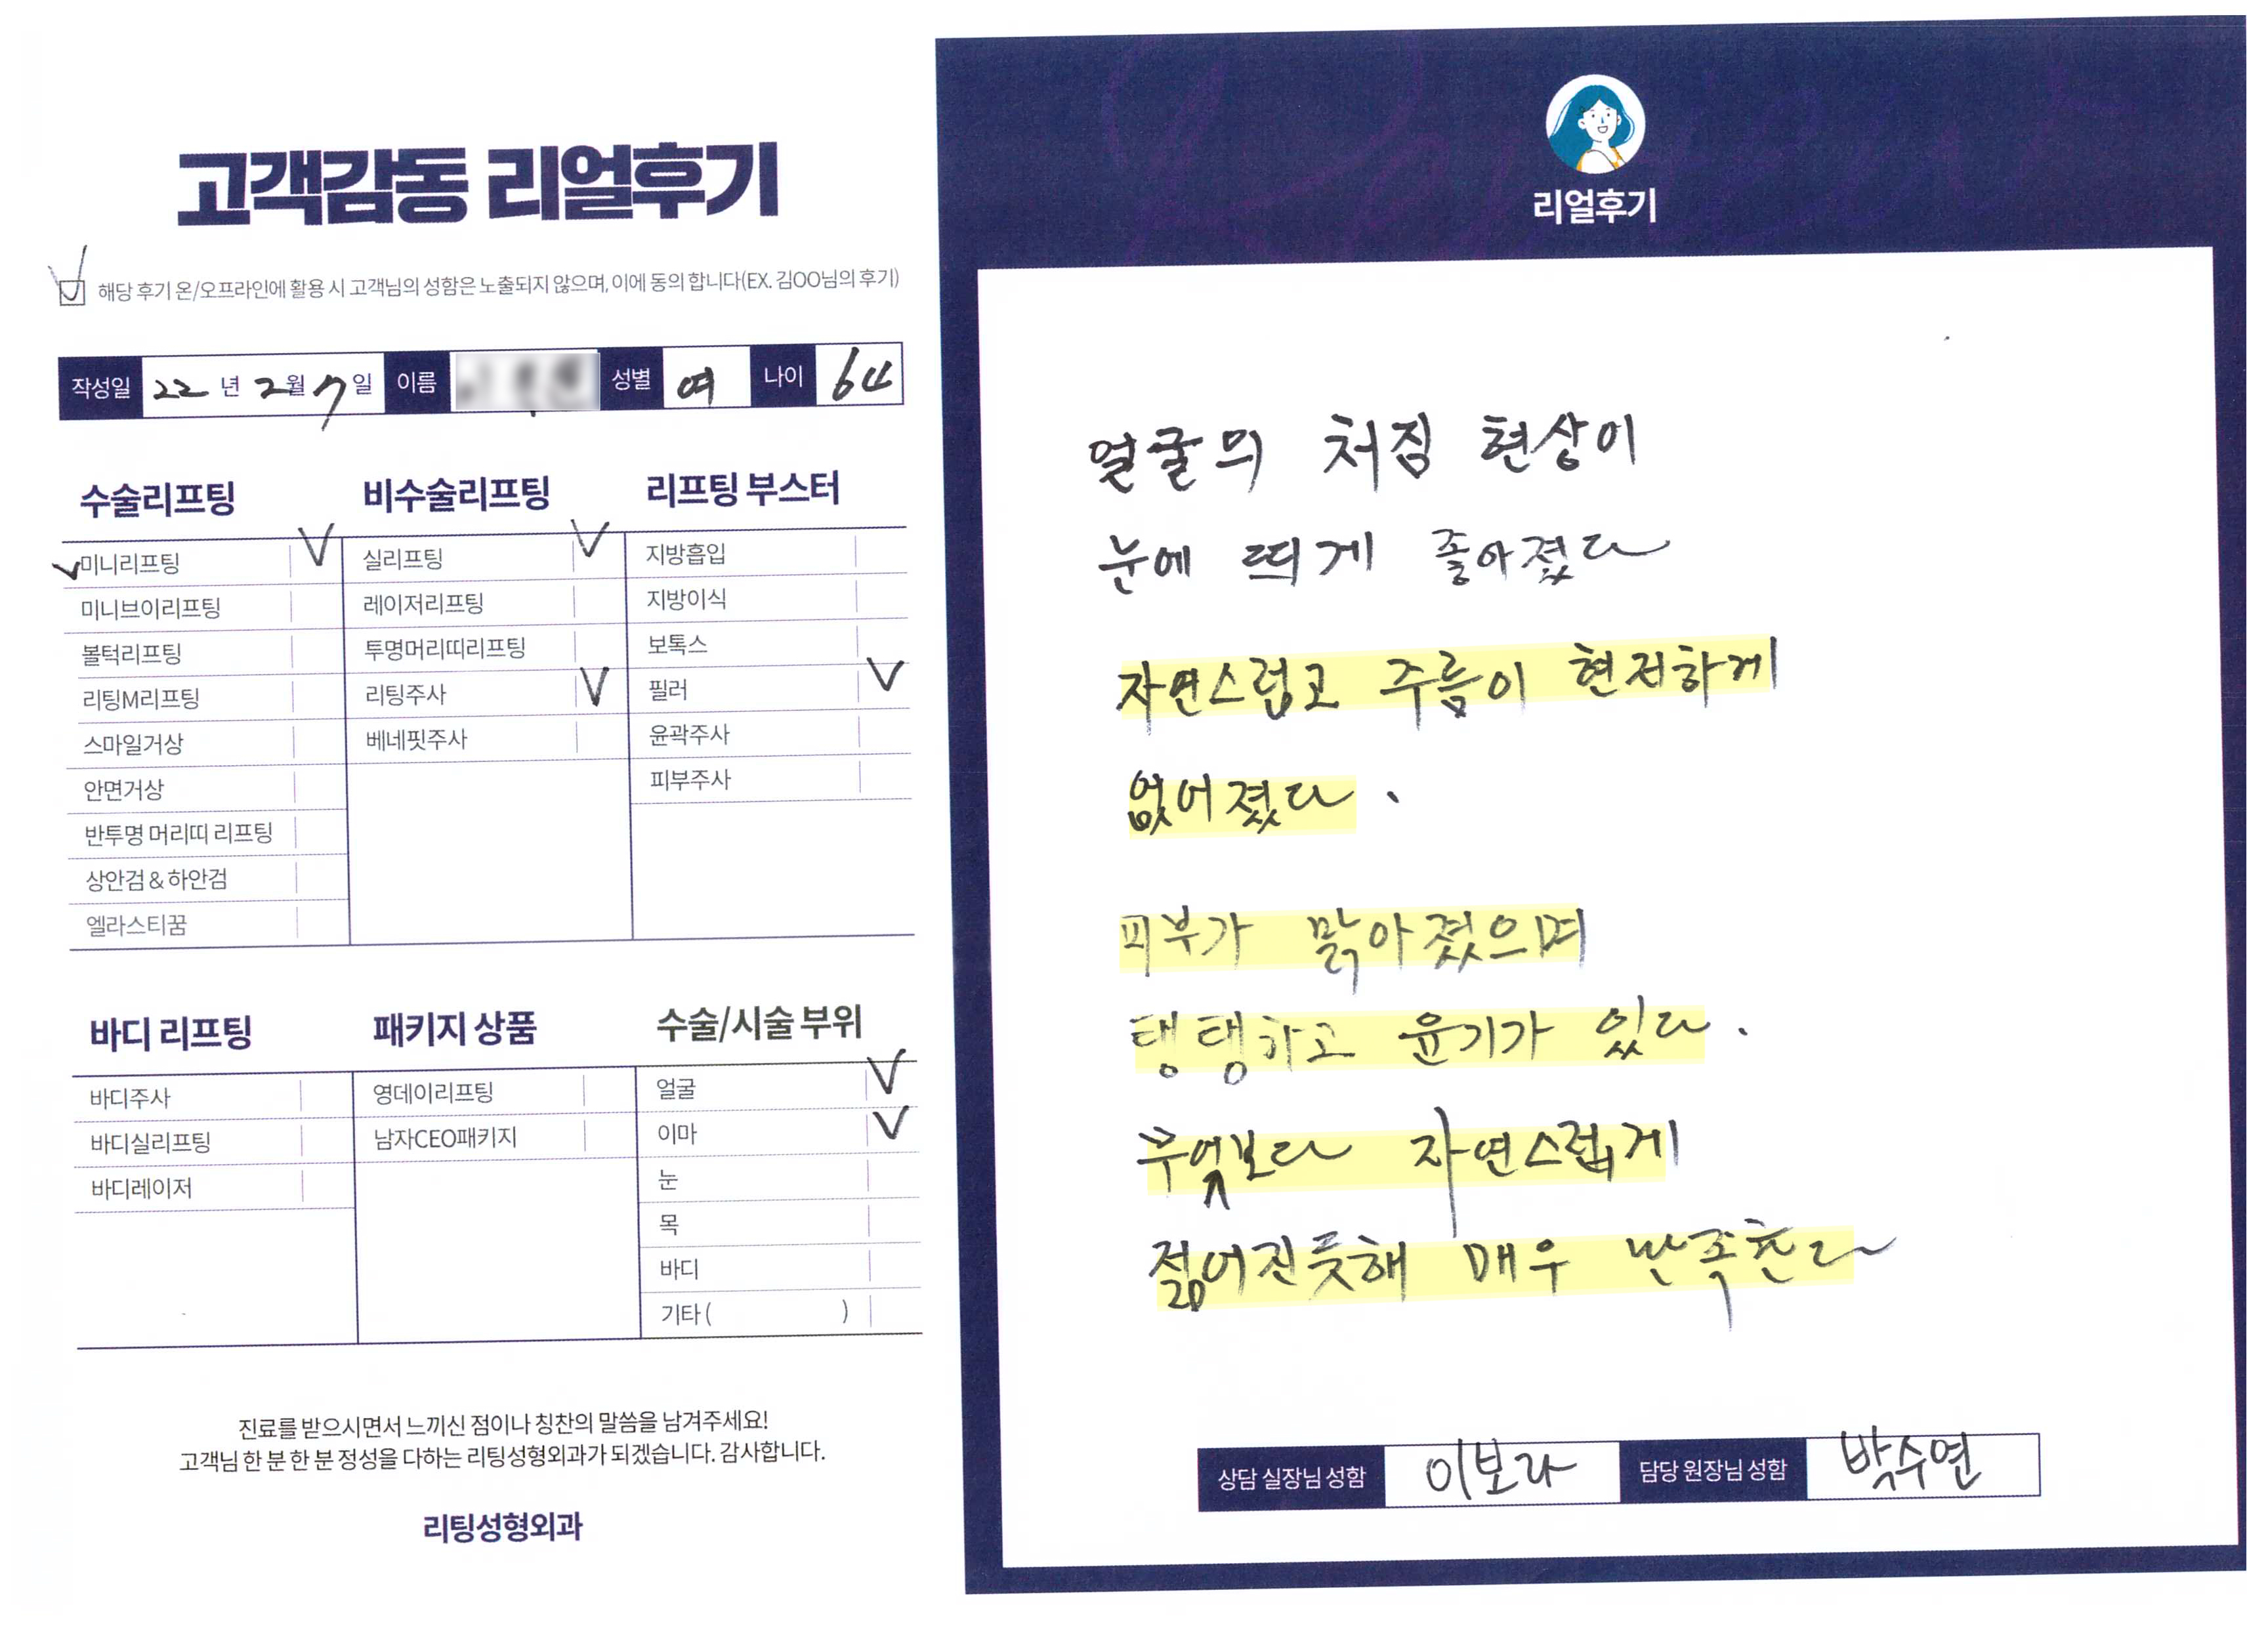 고객감동 리얼후기
해당 후기 온/오프라인에 활용 시 고객님의 성함은 노출되지 않으며, 이에 동의 합니다(EX. 김OO님의 후기)
작성일 22 년 2월 7일 이름 성별 여 나이 64
수술리프팅
미니리프팅
미니브이리프팅
볼턱리프팅
리팅M리프팅
스마일거상
안면거상
반투명 머리띠 리프팅
상안검 & 하안검
엘라스티꿈
비수술리프팅
실리프팅
레이저리프팅
투명머리띠리프팅
리팅주사
베네핏주사
리프팅 부스터
지방흡입
지방이식
보톡스
필러
윤곽주사
피부주사
바디 리프팅
바디주사
바디실리프팅
바디레이저
패키지 상품
영데이리프팅
남자CEO패키지
수술/시술 부위
얼굴
이마
눈
목
바디
기타 ( )
진료를 받으시면서 느끼신 점이나 칭찬의 말씀을 남겨주세요!
고객님 한 분 한 분 정성을 다하는 리팅성형외과가 되겠습니다. 감사합니다.
리팅성형외과
리얼후기
얼굴의 처짐 현상이
눈에 띄게 좋아졌다
자연스럽고 주름이 현저하게
없어졌다.
피부가 맑아졌으며
탱탱하고 윤기가 있다.
무엇보다 자연스럽게
젊어진듯해 매우 만족한다
상담 실장님 성함 이보라 담당 원장님 성함 박수연